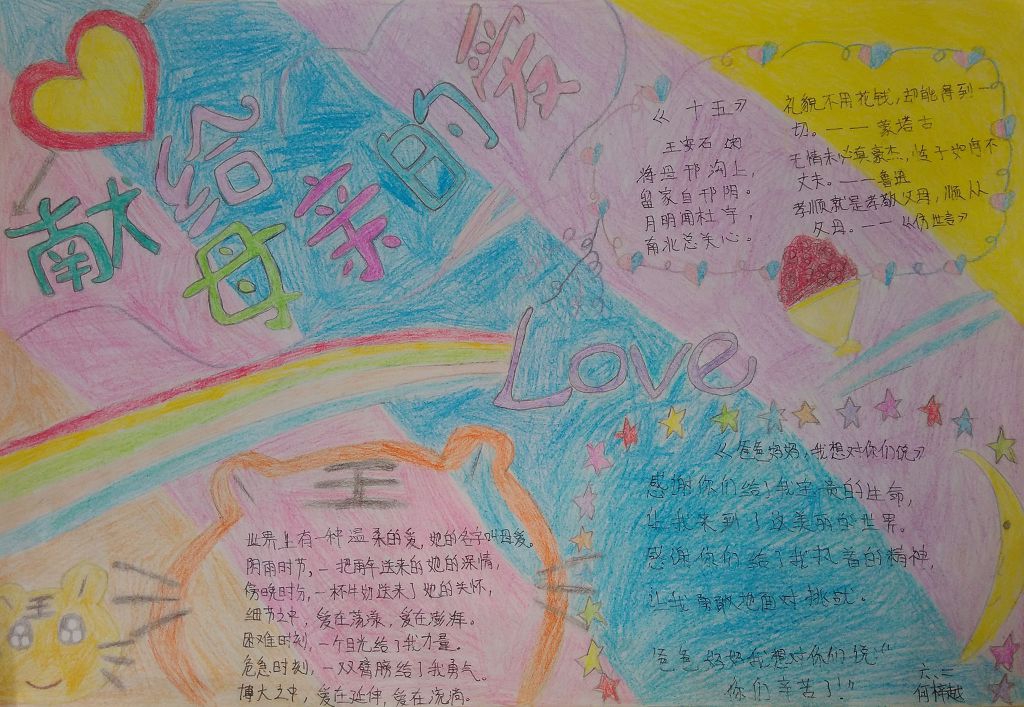 献给母亲的爱
《十五》
王安石
将母邗沟上，
留家白邗阴。
月明闻杜宇，
南北总关心。
礼貌不用花钱，却能得到一
切。——蒙塔古
无情未必真豪杰，怜子如何不
丈夫。——鲁迅
孝顺就是孝敬父母，顺从
父母。——
Love
世界上有一种温柔的爱，她的名字叫母爱。
阴雨时节，一把雨伞送来的她的深情，
傍晚时分，一杯牛奶送来了她的关怀，
细节之中，爱在荡漾，爱在澎湃。
困难时刻，一个目光给了我力量。
危急时刻，一双臂膀给了我勇气。
博大之中，爱在延伸，爱在流淌。
王
王
《爸爸妈妈，我想对你们说》
感谢你们给了我宝贵的生命，
让我来到了这美丽的世界。
感谢你们给了我执着的精神，
让我勇敢地面对挑战。
爸爸妈妈我想对你们说：“
你们辛苦了！”
六、二
何梓越